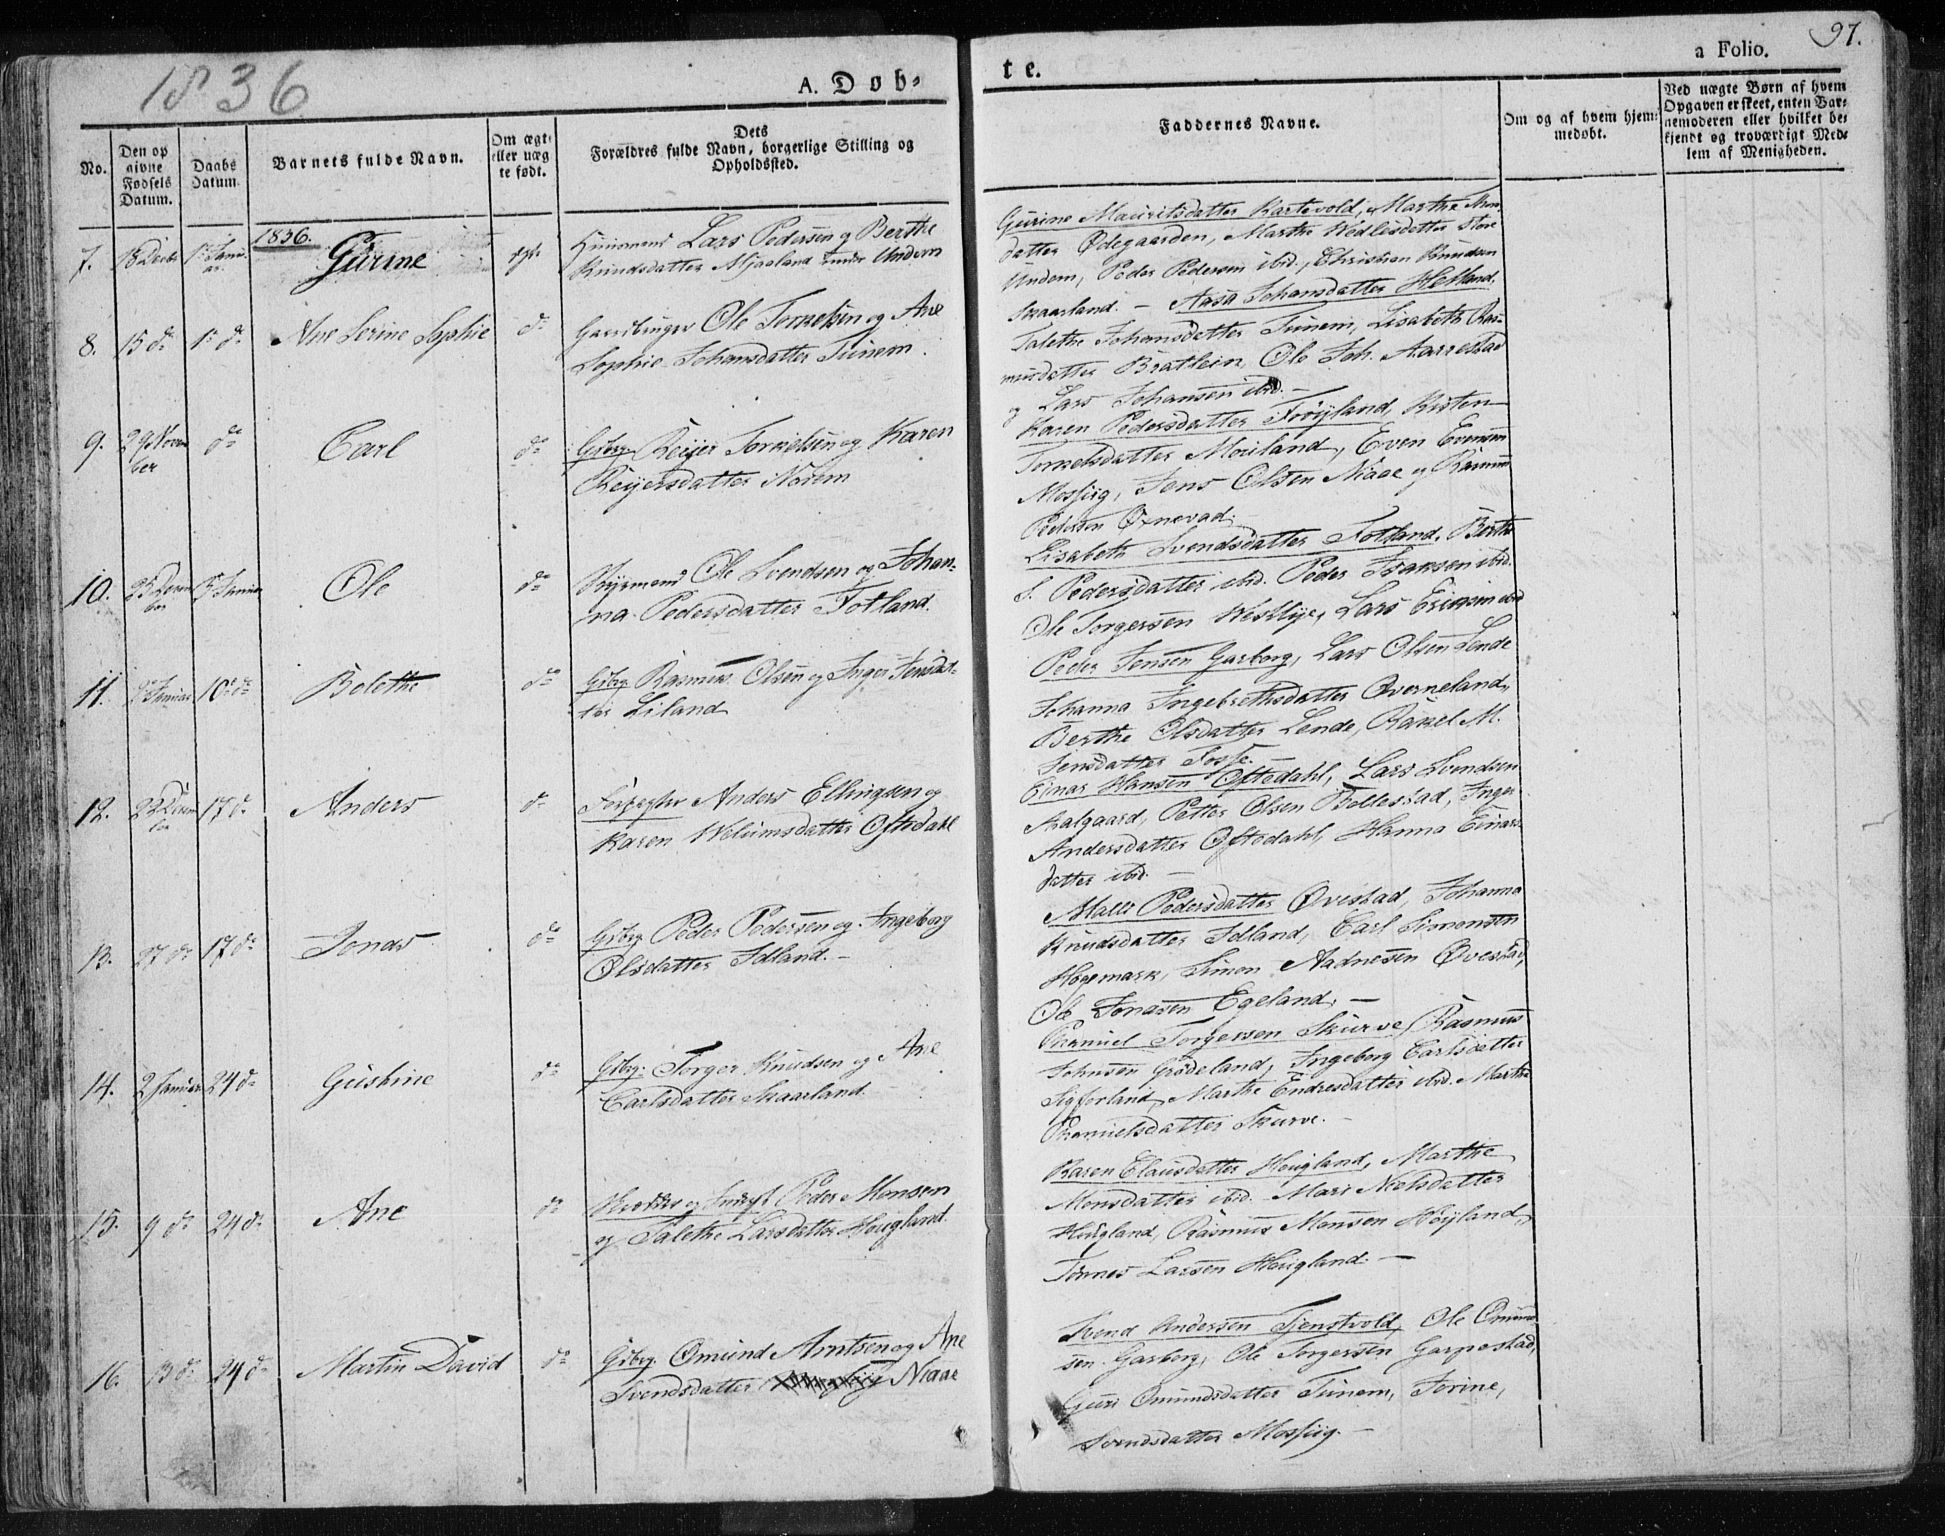 1836
A. Døb-
te.
a Folio.
97.
No.
Den op
givne
Fødsels
Datum.
Daabs
Datum.
Barnets fulde Navn.
Om ægte
eller uæg
te født.
Dets
Forældres fulde Navn, borgerlige Stilling og
Opholdssted.
Faddernes Navne.
Om og af hvem hjem-
medøbt.
Ved uægte Børn af hvem
Opgaven er skeet, enten Bar-
nemoderen eller hvilket be-
kjendt og troværdigt Med-
lem af Menigheden.
1836.
7.
Gurine
Huusmand Lars Pedersen og Berthe
Knudsdatter Mjaaland under Undem
Gurine Mauritsdatter Kartevold, Marthe
datter Ødegaarden, Marthe Store
Undem, Peder Pedersen ibid., Christian Knudsen
Skaarland. —
8. 15 do 1 do
Ane Serine Sophie
do
Ole Torkelsen og Ane
Sophie Johansdatter Tunem.
Aasa Johansdatter Hetland,
Talethe Johansdatter Tunem, Lisabeth Ras-
musdatter Bratlein, Ole Joh. Aarrestad
og Lars Johansen ibid. —
9. 29 Novem
ber
do
Carl
do
Gbrg. Reijer Torkelsen og Karen
Reijersdatter Norem
Karen Pedersdatter Frøyland, Kisten
Torkelsdatter Moiland, Even Evensen
Mossiig, Jens Olsen Niaae og Rasmus
Pedersen Øxnevad.
10.
Ole
do
Ole Svendsen og Johan-
na Pedersdatter Fotland.
Lisabeth Svendsdatter Fotland, Berthe
S. Pedersdatter ibid. Peder Isaksen ibid.
Ole Torgersen Westlye, Lars Ericksen ibid
11. Januar 10 do
Bolethe
do
Gbrg. Rasmus Olsen og Inger Jensdat-
ter Liland
Peder Jensen Garborg, Lars Olsen Lende
Johanna Ingebrethsdatter Qverneland,
Berthe Olsdatter Lende, Rakel M.
Jensdatter Fosse. —
12. 17 do
Anders
do
Anders Ellingsen og
Karen Welumsdatter Oftedahl
Einar Hansen Oftedahl, Lars Svendsen
Aalgaard, Petter Olsen Bollestad, Inger
Andersdatter Oftedahl, Hanna Einars-
datter ibid. —
13. 27 do 17 do
Jonas
do
Gbrg. Peder Pedersen og Ingeborg
Olsdatter Idland. —
Malli Pedersdatter Øvestad, Johanna
Knudsdatter Idland, Carl Simonsen
Høgemark, Simon Aadnesen Øvestad,
Ole Jonasen Egeland. —
14. 2 Januar 24 do
Gustine
do
Gbrg. Torger Knudsen og Ane
Carlsdatter Skaarland.
Thamuel Torgersen Skurve, Rasmus
Johnsen Grødeland, Ingeborg Carlsdatter
Sigforland, Marthe Endresdatter ibid. Marthe
Thamuelsdatter Skurve. —
15. 9 do 24 do
Ane
do
Peder Monsen
og Talethe Larsdatter Hougland.
Karen Clausdatter Hougland, Marthe
Monsdatter ibid. Mari Neelsdatter
Hougland, Rasmus Monsen Høyland,
Tønnes Larsen Hougland. —
16. 13 do 24 do
Martin David
do
Gbrg. Omund Arntsen og Ane
Svendsdatter Niaae
Svend Andersen Tjenstvold, Ole Omund-
sen Garborg, Ole Torgersen Garpestad,
Guri Omundsdatter Tunem, Torine,
Svendsdatter Mossiig. —